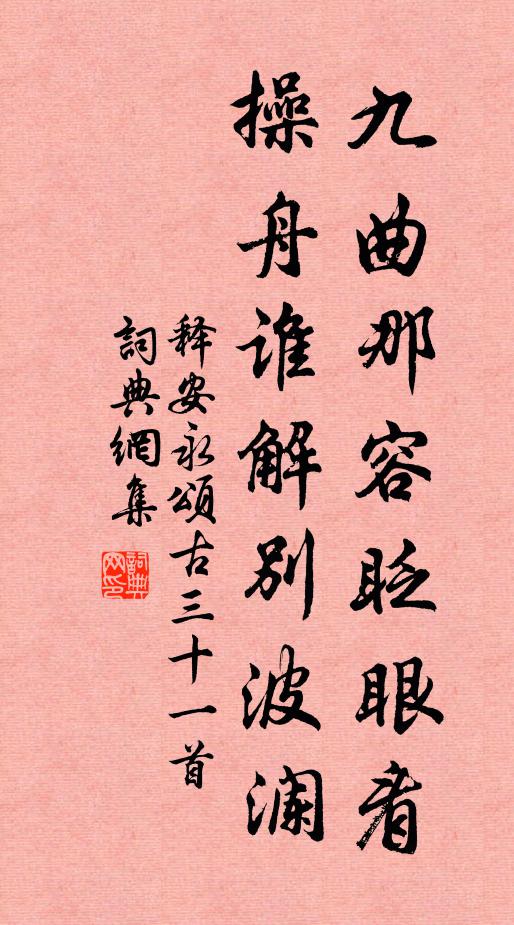 九曲那容眨眼看
操舟谁解别波澜
释安永頌古三十一首
詞典網集
詞典网印